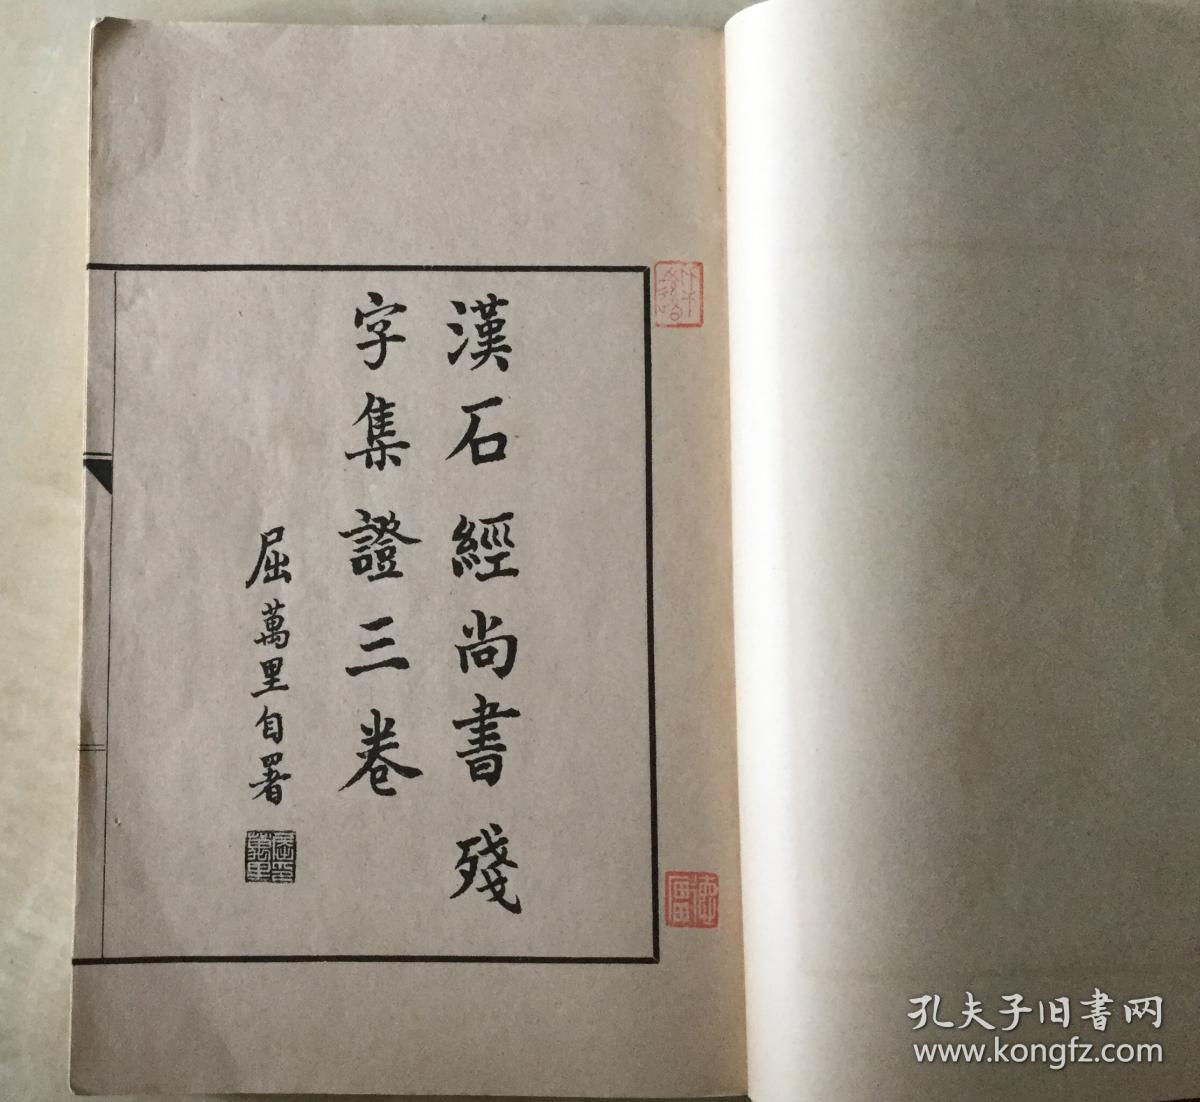 漢石經尚書殘
字集證三卷
屈萬里自署
孔夫子旧书网
www.kongfz.com